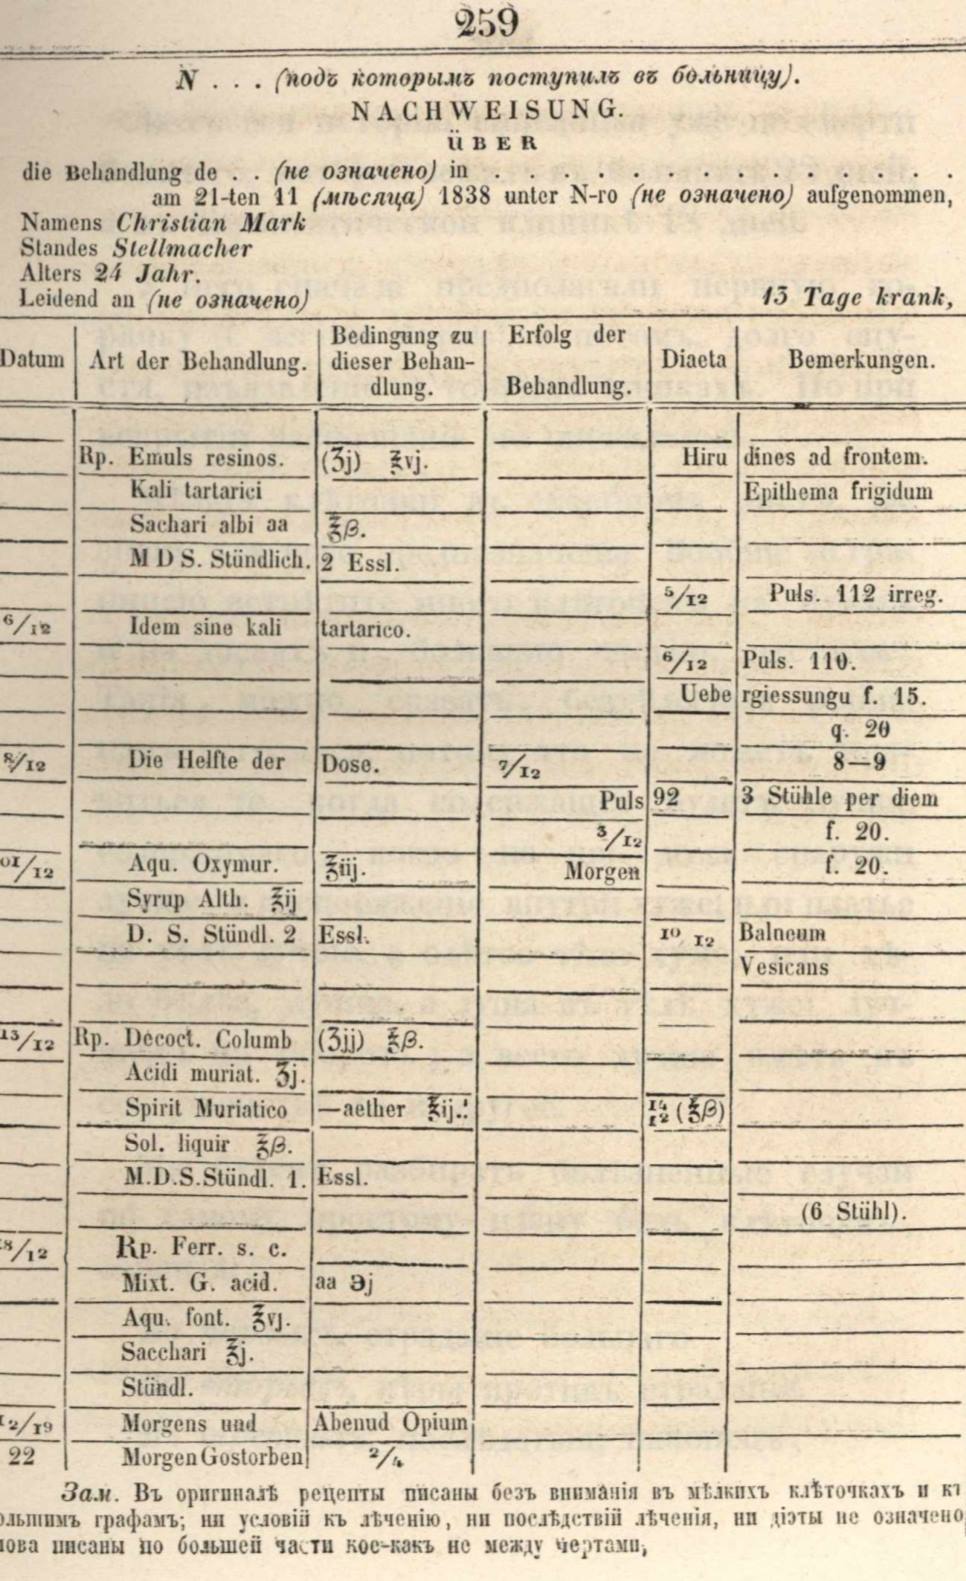 259
N . . . (подъ которымъ поступилъ въ больницу).
NACHWEISUNG.
ÜBER
die Behandlung de . . (не означено) in . . . . . . . . . . . . .
am 21-ten 11 (мѣсяца) 1838 unter N-ro (не означено) aufgenommen,
Namens Christian Mark
Standes Stellmacher
Alters 24 Jahr.
Leidend an (не означено) 13 Tage krank,
Datum Art der Behandlung. Bedingung zu dieser Behan-dlung. Erfolg der Behandlung. Diaeta Bemerkungen.
Rp. Emuls resinos. (ʒj) ℥vj. Hiru dines ad frontem.
Kali tartarici Epithema frigidum
Sachari albi aa ℥β.
M D S. Stündlich. 2 Essl.
5/12 Puls. 112 irreg.
6/12 Idem sine kali tartarico.
6/12 Puls. 110.
Uebe rgiessungu f. 15.
q. 20
8/12 Die Helfte der Dose. 7/12 8—9
Puls 92 3 Stühle per diem
3/12 f. 20.
01/12 Aqu. Oxymur. ℥iij. Morgen f. 20.
Syrup Alth. ℥ij
D. S. Stündl. 2 Essl. 10 12 Balneum
Vesicans
13/12 Rp. Decoct. Columb (ʒjj) ℥β.
Acidi muriat. ʒj.
Spirit Muriatico —aether ℥ij.: 14 12 (℥β)
Sol. liquir ℥β.
M.D.S.Stündl. 1. Essl.
(6 Stühl).
18/12 Rp. Ferr. s. c.
Mixt. G. acid. aa ℈j
Aqu. font. ℥vj.
Sacchari ℥j.
Stündl.
12/19 Morgens und Abenud Opium
22 Morgen Gostorben 2/4
Зам. Въ оригиналѣ рецепты писаны безъ вниманія въ мѣлкихъ клѣточкахъ и
графамъ; ни условій къ лѣченію, ни послѣдствій лѣченія, ни діэты не означено
писаны по большей части кое-какъ не между чертами,